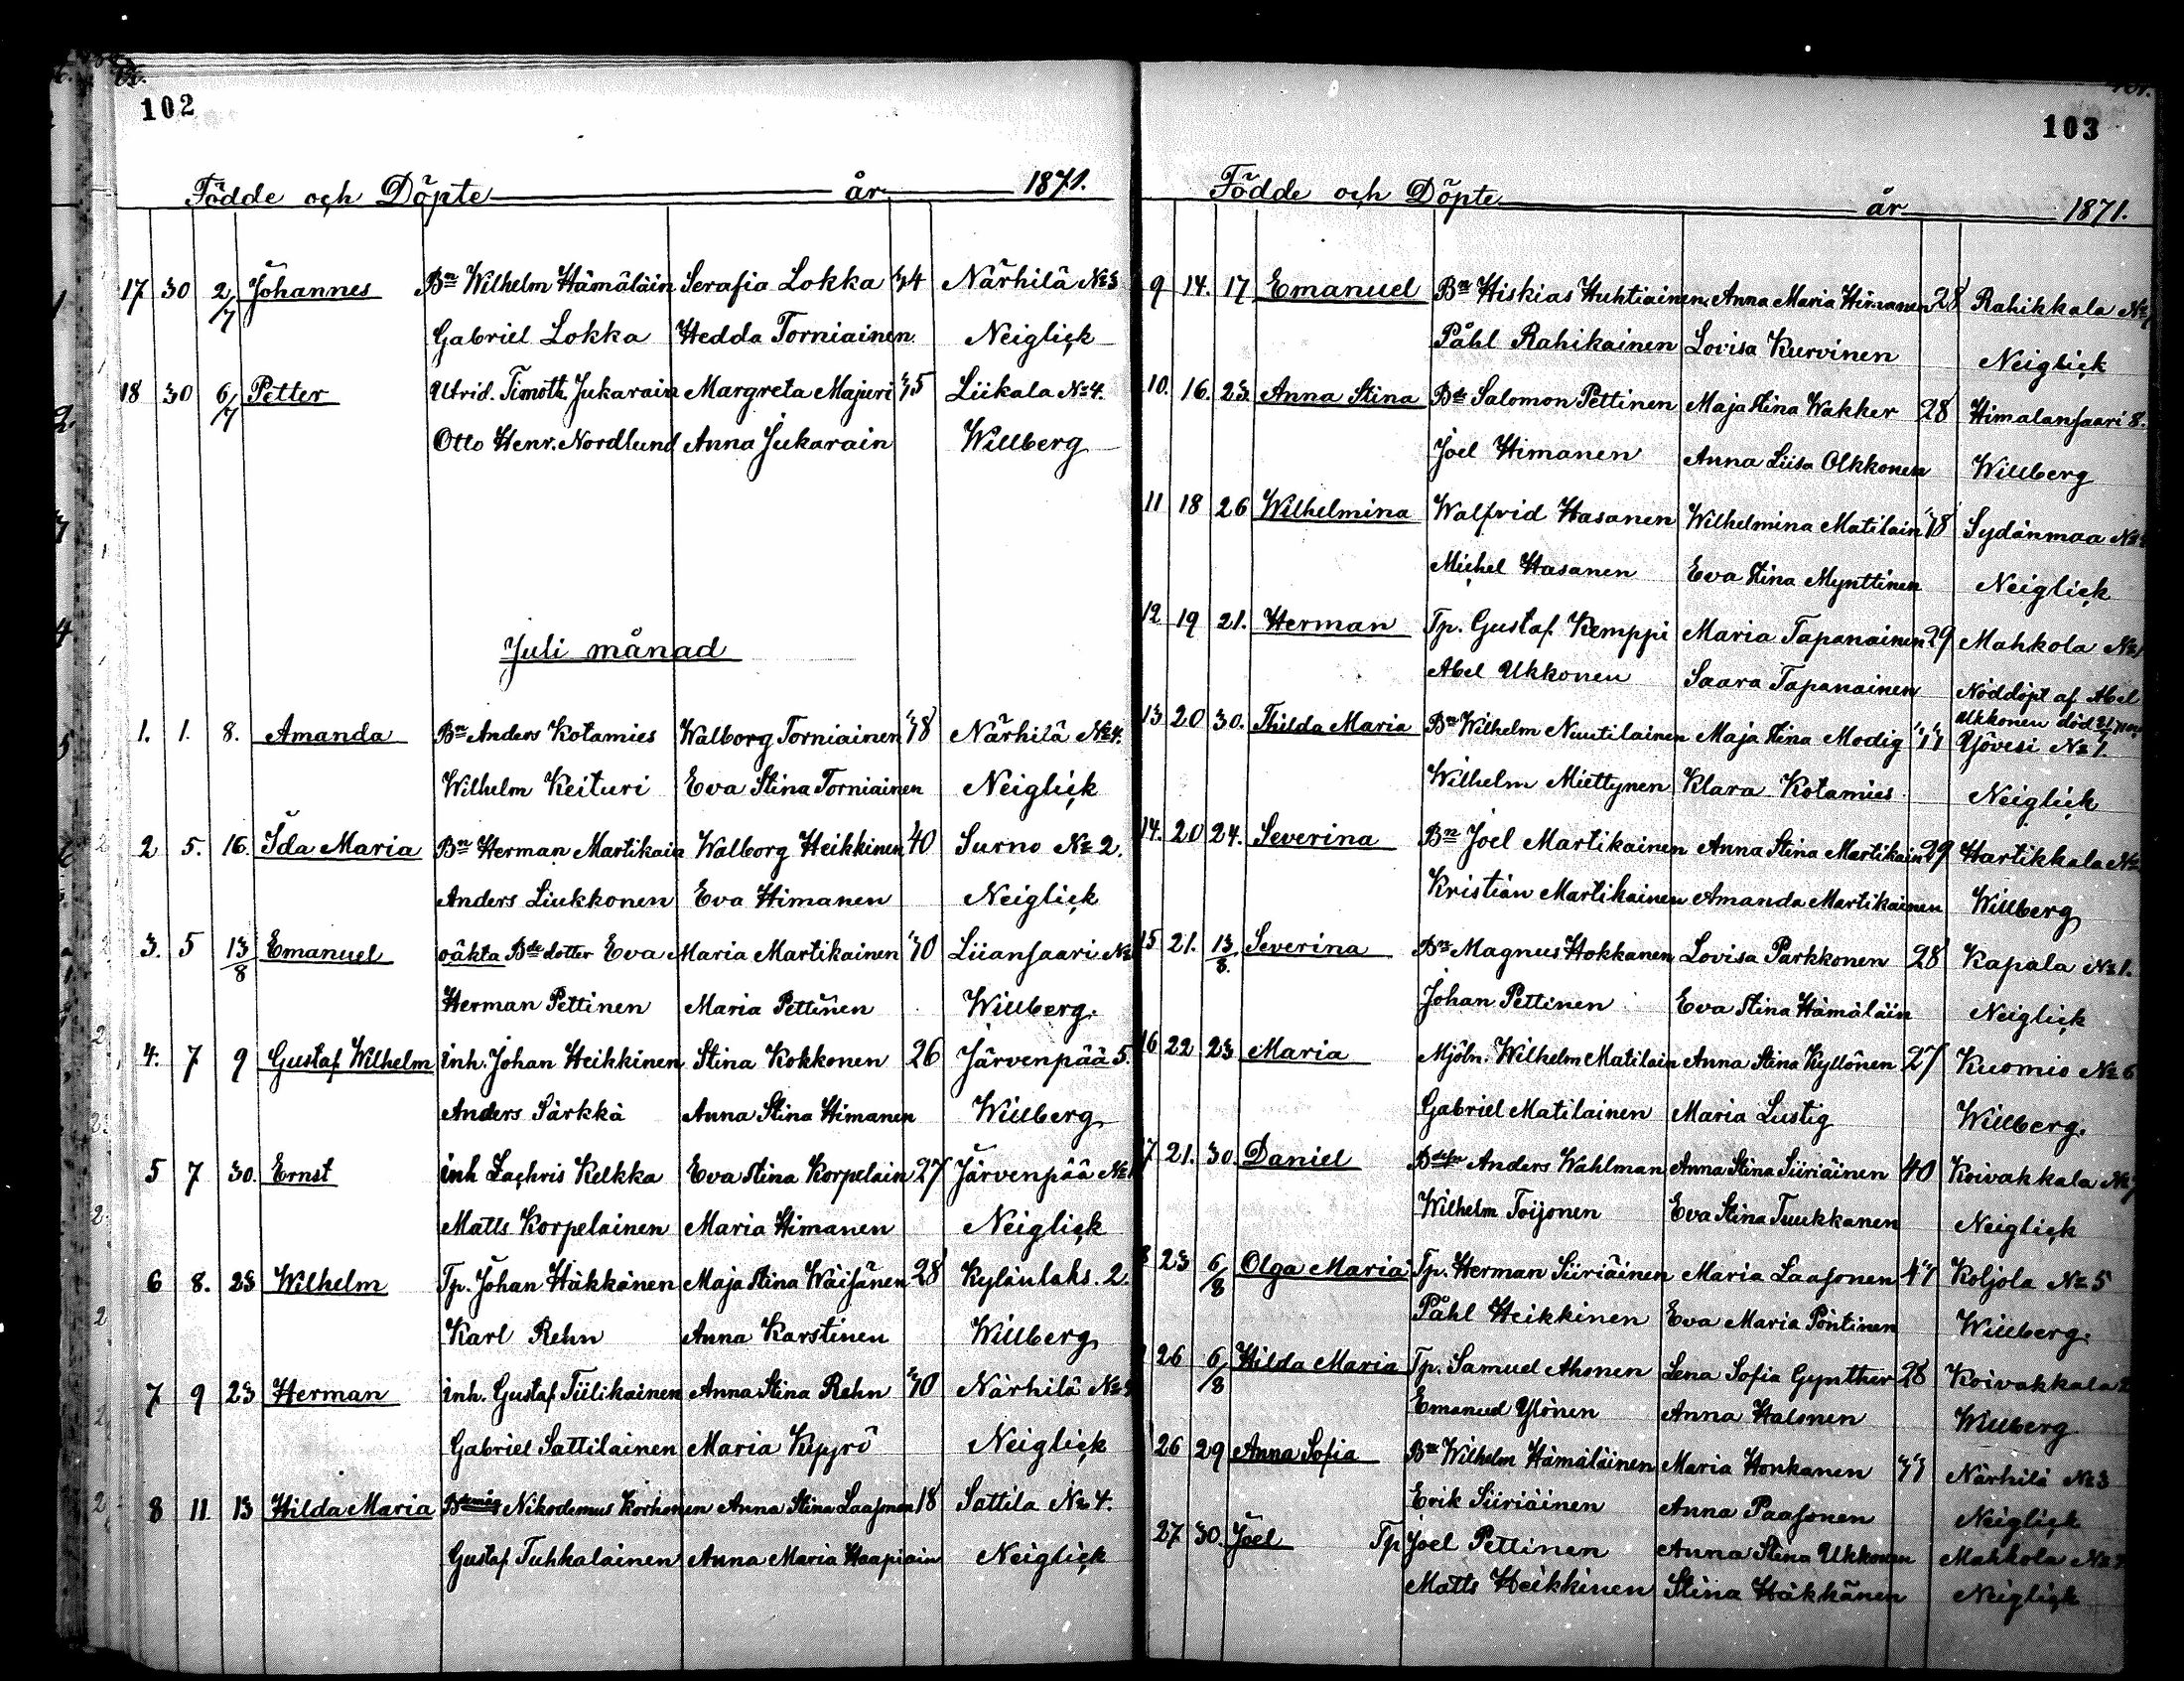 102
Födde och Döpte år 1871.
17 30 2/7 Johannes Bn Wilhelm Hämäläin Serafia Lokka 34 Närhilä № 3
Gabriel Lokka Hedda Torniainen Neiglick
18 30 6/7 Petter Utrid. Timoth. Jukarain Margreta Majuri 35 Liikala № 4.
Otto Henr. Nordlund Anna Jukarain Willberg
Juli månad
1. 1. 8. Amanda Bn Anders Kotamies Walborg Torniainen 38 Närhilä № 4.
Wilhelm Keituri Eva Stina Torniainen Neiglick
2 5. 16. Ida Maria Bn Herman Martikain Walborg Heikkinen 40 Surno № 2.
Anders Liukkonen Eva Himanen Neiglick
3. 5 13/8 Emanuel oäkta Bde dotter Eva Maria Martikainen 30 Liiansaari №
Herman Pettinen Maria Pettinen Willberg.
4. 7 9 Gustaf Wilhelm inh. Johan Heikkinen Stina Kokkonen 26 Järvenpää 5.
Anders Särkkä Anna Stina Himanen Willberg
5 7 30. Ernst inh Zachris Kelkka Eva Stina Korpelain 27 Järvenpää №
Matts Korpelainen Maria Himanen Neiglick
6 8. 23 Wilhelm Tp. Johan Häkkänen Maja Stina Wäisänen 28 Kylänlaks. 2.
Karl Rehn Anna Karstinen Willberg
7 9 23 Herman inh. Gustaf Tiilikainen Anna Stina Rehn 30 Närhilä №
Gabriel Sattilainen Maria Kepyrö Neiglick
8 11. 13 Hilda Maria Nikodemus Korhonen Anna Stina Laasonen 18 Sattila № 4.
Gustaf Tuhkalainen Anna Maria Haapiain Neiglick
103
Födde och Döpte år 1871.
9 14. 17 Emanuel Bn Hiskias Huhtiainen Anna Maria Himanen 28 Rahikkala №
Påhl Rahikainen Lovisa Kurvinen Neiglick
10. 16. 23. Anna Stina Bde Salomon Pettinen Maja Stina Wakker 28 Himalansaari 8.
Joel Himanen Anna Liisa Olkkonen Willberg
11 18 26 Wilhelmina Walfrid Hasanen Wilhelmina Matilain 18 Sydänmaa №
Michel Hasanen Eva Stina Mynttinen Neiglick
12 19 21. Herman Tp. Gustaf Kemppi Maria Tapanainen 29 Mahkola №
Abel Ukkonen Saara Tapanainen Nöddöpt af Abel
Ukkonen död
13 20 30. Thilda Maria Bn Wilhelm Nuutilainen Maja Stina Modig Yövesi № 7.
Wilhelm Miettynen Klara Kotamies Neiglick
14. 20 24. Severina Bn Joel Martikainen Anna Stina Martikain 29 Hartikkala №
Kristian Martikainen Amanda Martikainen Willberg
15 21. 13/8. Severina Bn Magnus Hokkanen Lovisa Parkkonen 28 Kapala № 1.
Johan Pettinen Eva Stina Hämäläin Neiglick
16 22 23 Maria Mjöln. Wilhelm Matilain Anna Stina Kyllönen 27 Kuomio № 6
Gabriel Matilainen Maria Lustig Willberg.
17 21. 30. Daniel Anders Wahlman Anna Stina Siiriäinen 40 Koivakkala №
Wilhelm Toijonen Eva Stina Tuukkanen Neiglick
8 23 6/8 Olga Maria Tp. Herman Siiriäinen Maria Laasonen Koljola № 5
Påhl Heikkinen Eva Maria Pöntinen Willberg.
26 6/8 Hilda Maria Tp. Samuel Ahonen Lena Sofia Gynther 28 Koivakkala 2
Emanuel Ylönen Anna Halonen Willberg
26 29 Anna Sofia Bn Wilhelm Hämäläinen Maria Honkanen 33 Närhilä № 3
Erik Siiriäinen Anna Paasonen Neiglick
27 30. Joel Tp Joel Pettinen Anna Stina Ukkonen Mahkola №
Matts Heikkinen Stina Häkkänen Neiglick